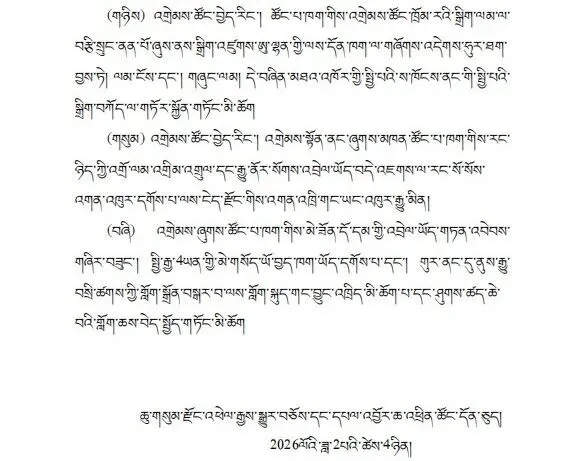 (གཉིས) འགྲེམས་ཚོང་བྱེད་རིང་། ཚོང་པ་ཁག་གིས་འགྲེམས་ཚོང་ཁྲོམ་རའི་སྒྲིག་ལམ་ལ་
བརྩི་སྲུང་ནན་པོ་ཞུས་ནས་སྒྲིག་འཛུགས་ཨུ་ལྷན་གྱི་ལས་དོན་ཁག་ལ་གཞོགས་འདེགས་ཧུར་ཐག་
བྱས་ཏེ། ལམ་ངོས་དང་། གཞུང་ལམ། དེ་བཞིན་མཐའ་འཁོར་གྱི་སྤྱི་པའི་ས་ཁོངས་ནང་གི་སྤྱི་པའི་
སྒྲིག་བཀོད་ལ་གཏོར་སྐྱོན་གཏོང་མི་ཆོག
(གསུམ) འགྲེམས་ཚོང་བྱེད་རིང་། འགྲེམས་སྟོན་ནང་ཞུགས་མཁན་ཚོང་པ་ཁག་གིས་རང་
ཉིད་ཀྱི་འགྲོ་ལམ་འགྲིམ་འགྲུལ་དང་རྒྱུ་ནོར་སོགས་འབྲེལ་ཡོད་བདེ་འཇགས་ལ་རང་སོ་སོས་
འགན་འཁུར་དགོས་པ་ལས་ངེད་རྫོང་གིས་འགན་འཁྲི་གང་ཡང་འཁུར་རྒྱུ་མིན།
(བཞི) འགྲེམས་ཞུགས་ཚོང་པ་ཁག་གིས་མེ་ཟོན་དོ་དམ་གྱི་འབྲེལ་ཡོད་གཏན་འབེབས་
གཞིར་བཟུང་། སྤྱི་རྒྱ་4ཡན་གྱི་མེ་གསོད་ཡོ་བྱད་ཁག་ཡོད་དགོས་པ་དང་། གུར་ནང་དུ་ནུས་རྒྱུ་
བསྲི་ཚགས་ཀྱི་གློག་སྒྲོན་བསྒར་བ་ལས་གློག་སྐུད་གང་བྱུང་འཁྲིད་མི་ཆོག་པ་དང་ཤུགས་ཚད་ཆེ་
བའི་གློག་ཆས་བེད་སྤྱོད་གཏོང་མི་ཆོག
ཆུ་གསུམ་རྫོང་འཕེལ་རྒྱས་སྒྱུར་བཅོས་དང་དཔལ་འབྱོར་ཆ་འཕྲིན་ཚོང་དོན་ཅུད།
2026ལོའི་ཟླ་2པའི་ཚེས་4ཉིན།